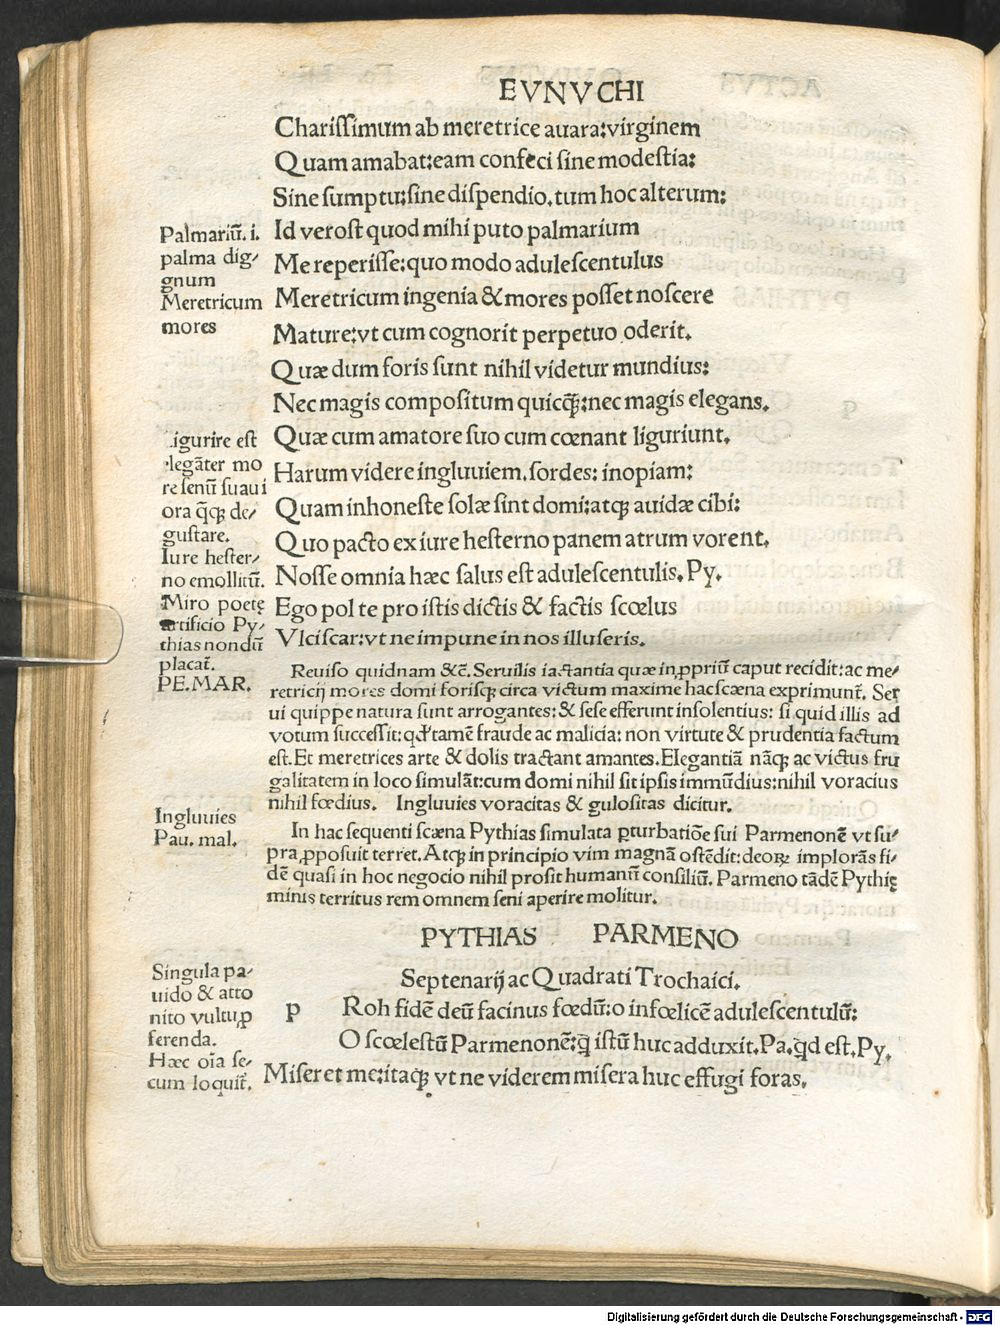 EVNVCHI
Charissimum ab meretrice auara:virginem
Quam amabat:eam confeci sine modestia:
Sine sumptu:sine dispendio.tum hoc alterum:
Id verost quod mihi puto palmarium
Me reperisse:quo modo adulescentulus
Meretricum ingenia & mores posset noscere
Mature:vt cum cognorit perpetuo oderit.
Quæ dum foris sunt nihil videtur mundius:
Nec magis compositum quicq̃:nec magis elegans.
Quæ cum amatore suo cum cœnant liguriunt.
Harum videre ingluuiem.sordes: inopiam:
Quam inhoneste solæ sint domi:atq; auidæ cibi:
Quo pacto ex iure hesterno panem atrum vorent.
Nosse omnia hæc salus est adulescentulis. Py.
Ego pol te pro istis dictis & factis scœlus
Vlciscar:vt ne impune in nos illuseris.
Palmariũ. i.
palma dig-
gnum
Meretricum
mores
igurire est
legãter mo
re senũ suaui
ora q̃q; de-
gustare.
Iure hester-
no emollitũ.
Miro poetę
artificio Py-
thias nondũ
placat̃.
PE.MAR.
Reuiso quidnam &c̃. Seruilis iactantia quæ in ꝓpriũ caput recidit:ac me-
retricij mores domi forisq; circa victum maxime hac scæna exprimunt̃. Ser
ui quippe natura sunt arrogantes: & sese efferunt insolentius: si quid illis ad
votum successit: qđ tamẽ fraude ac malicia: non virtute & prudentia factum
est. Et meretrices arte & dolis tractant amantes. Elegantiã nãq; ac victus fru
galitatem in loco simulãt:cum domi nihil sit ipsis immũdius:nihil voracius
nihil fœdius. Ingluuies voracitas & gulositas dicitur.
Ingluuies
Pau. mal.
In hac sequenti scæna Pythias simulata ꝑturbatiõe sui Parmenonẽ vt su-
pra ꝓposuit terret. Atq; in principio vim magnã ostẽdit: deoꝝ implorãs fi-
dẽ quasi in hoc negocio nihil prosit humanũ consiliũ. Parmeno tãdẽ Pythię
minis territus rem omnem seni aperire molitur.
PYTHIAS PARMENO
Septenarij ac Quadrati Trochaici.
p Roh fidẽ deũ facinus fœdũ:o infœlicẽ adulescentulũ:
O scœlestũ Parmenonẽ:q̃ istũ huc adduxit. Pa. q̃d est. Py.
Miseret me:itaq; vt ne viderem misera huc effugi foras.
Singula pa-
uido & atto
nito vultu ꝓ
ferenda.
Hæc oĩa se-
cum loquit̃.
Digitalisierung gefördert durch die Deutsche Forschungsgemeinschaft - DFG